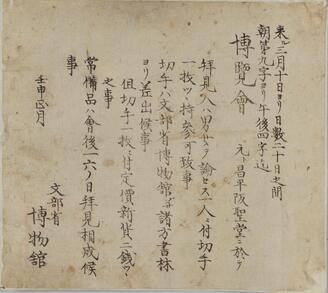 来ル三月十日ヨリ日数二十日之間
朝第九字ヨリ午後四字迄
博覧會
元ト昌平阪聖堂ニ於テ
拝見人ハ男女ヲ論セス一人ニ付切手
一枚ツヽ持参可致事
切手ハ文部省博物館并諸方書林
ヨリ差出候事
但切手一枚ニ付定價新貨二銭ツヽ
之事
常備品ハ會後一六ノ日拝見相成候
事
壬申正月
文部省
博物館